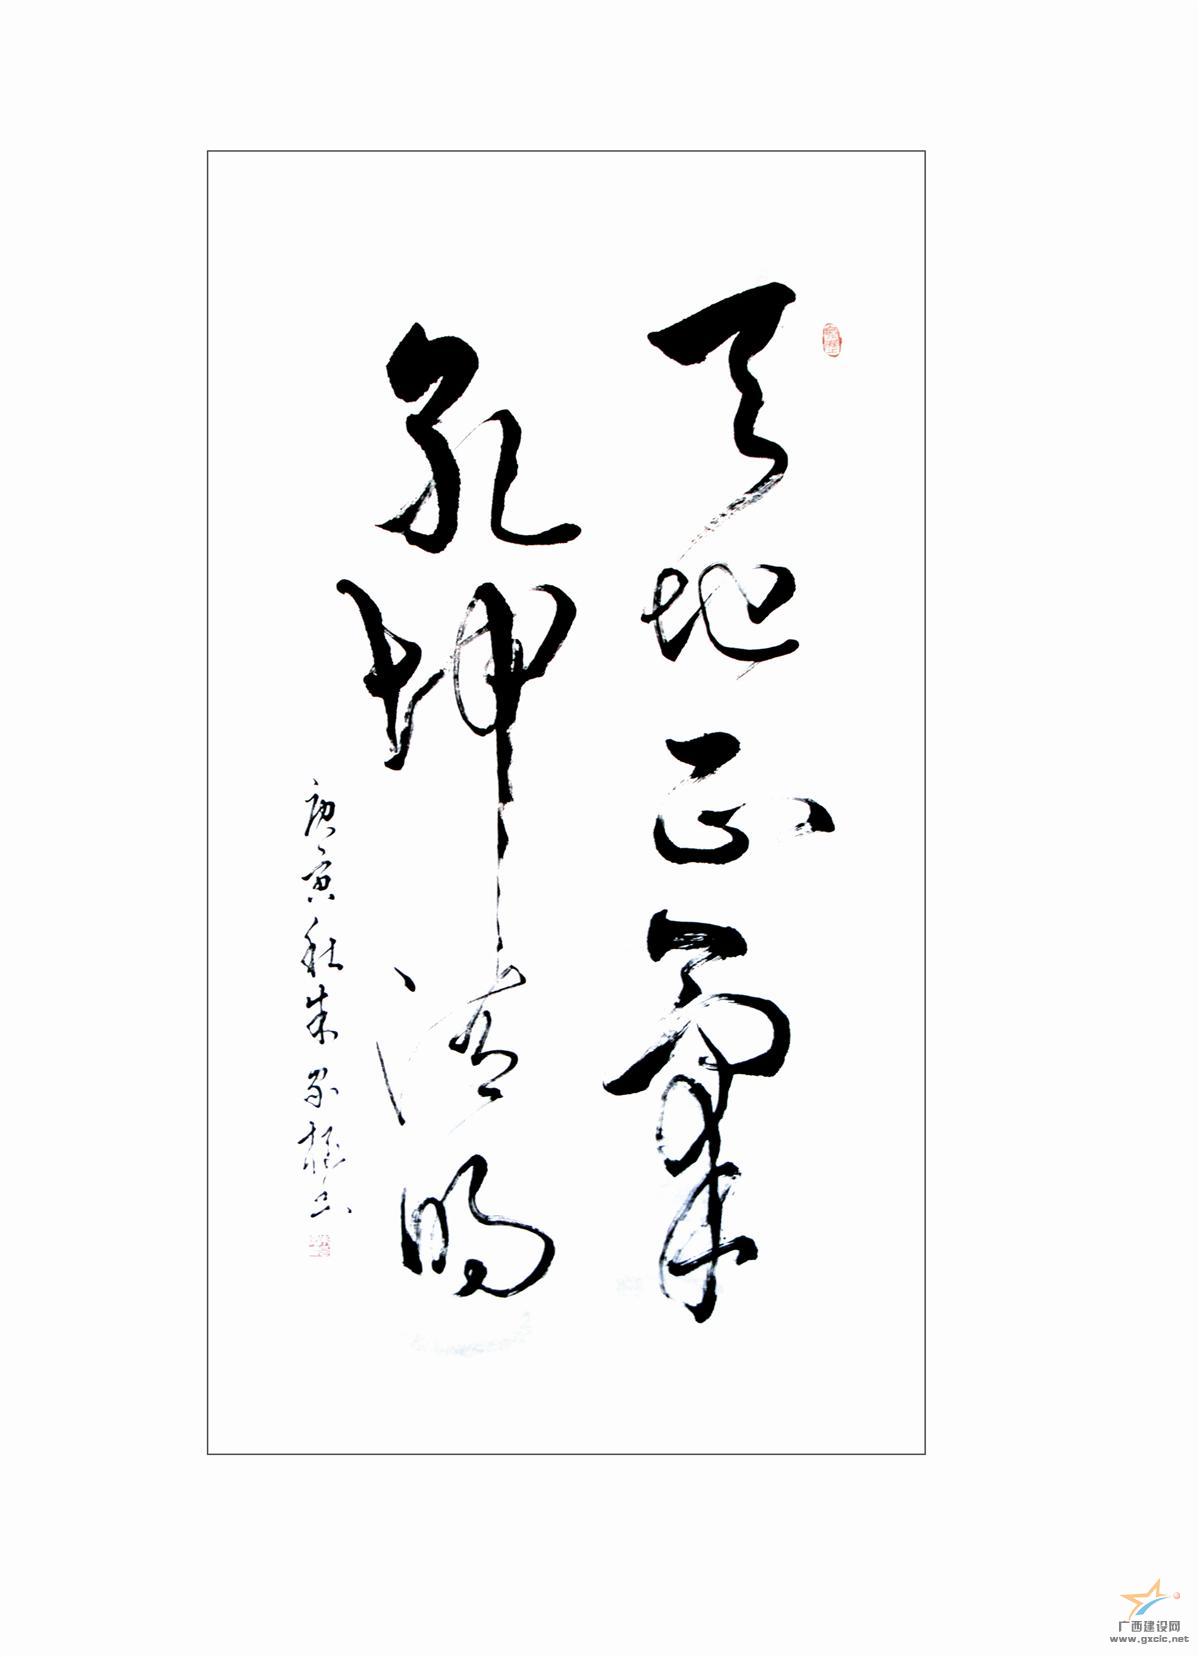 天地正氣
乾坤清明
庚寅秋朱
广西建设网
www.gxcic.net